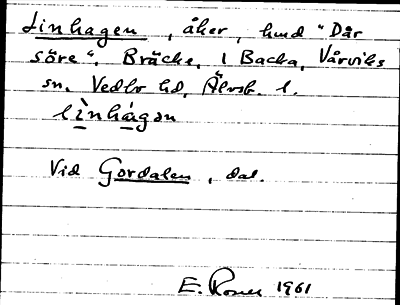 Linhagen, åker, hmd "Där
söre", Bräcke, 1 Backa, Vårviks
sn, Vedbo hd, Älvsb. l.
lìnhágən
Vid Gordalen, dal.
E. Rosén 1961